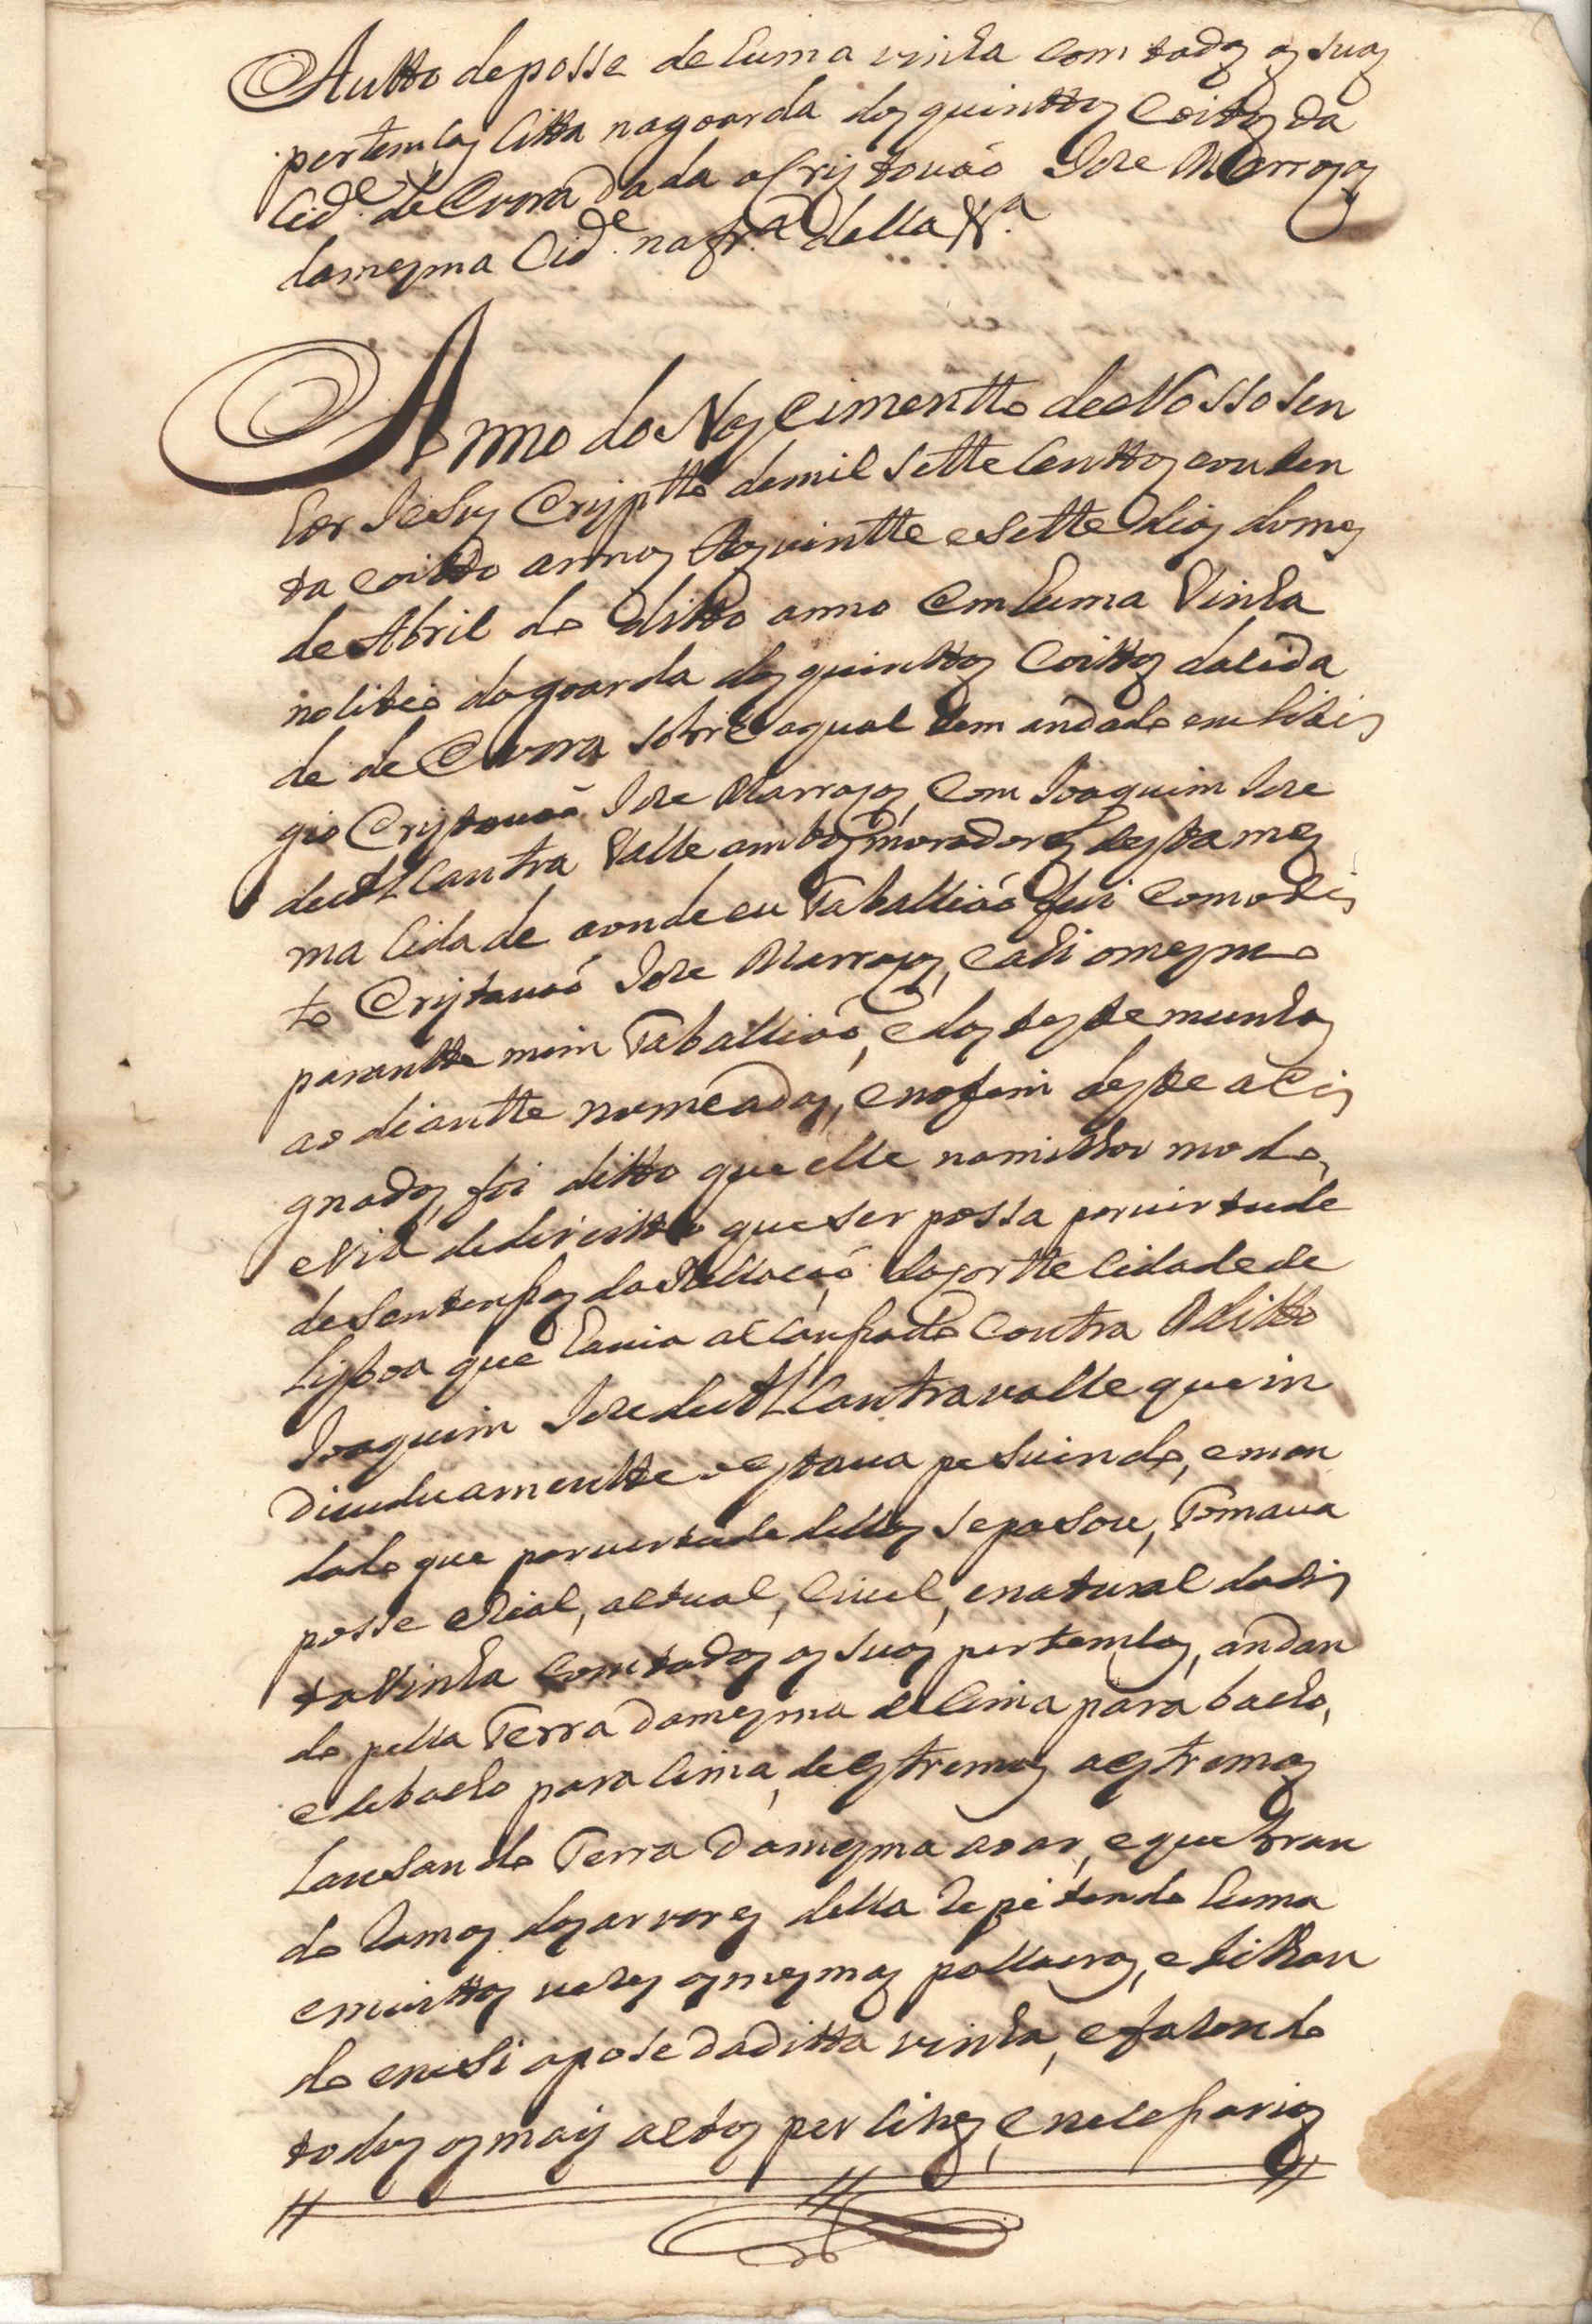 Autto de posse de huma vinha com todas as suas
pertensas citta na goarda dos quinttos Coitos da
Cide. de Evora dada a Cristovaõ Joze Marroyos
da mesma Cide. na fra. della &.a
Anno do Nascimentto de Nosso Sen
hor Jesus Cristto de mil sette Centtos e outen
ta e oitto annos Aos vintte e sette dias do mes
de Abril do ditto anno em huma Vinha
no citio da goarda dos quinttos Coittos da cida
de de Evora sobre a qual tem andado em liti
gio Cristovaõ Joze Marroyos, com Joaquim Joze
de Alcantra Valle ambos moradores desta mes
ma Cidade aonde eu Taballiaõ fui com o di
to Cristovaõ Joze Marroyos, e ahi o mesmo
parantte mim Taballiaõ, e das testemunhas
ao diantte nomeadas, e no fim deste aci
gnadas, foi ditto que elle na milhor modo,
e via de direitto que ser possa por virtude
de Sentensas da Rellacaõ da cortte Cidade de
Lisboa que havia alcansado Contra o ditto
Joaquim Joze de Alcantra valle que in
dividuamentte a estava pesuindo, e man
dado que por vertude dellas se pasou, Tomava
posse Rial, actual, Civel, e natural da di
ta vinha com todas as suas pertensas, andan
do pella Terra da mesma de cima para bacho,
e de bacho para cima, de estremas a estremas
Lansando Terra da mesma ao ar, e quebran
do Ramos das arvores della Repetindo huma
e muittas vezes as mesmas pallavras, e dittan
do em si a pose da ditta vinha, e fazendo
todos os mais actos percizos, e necesarios